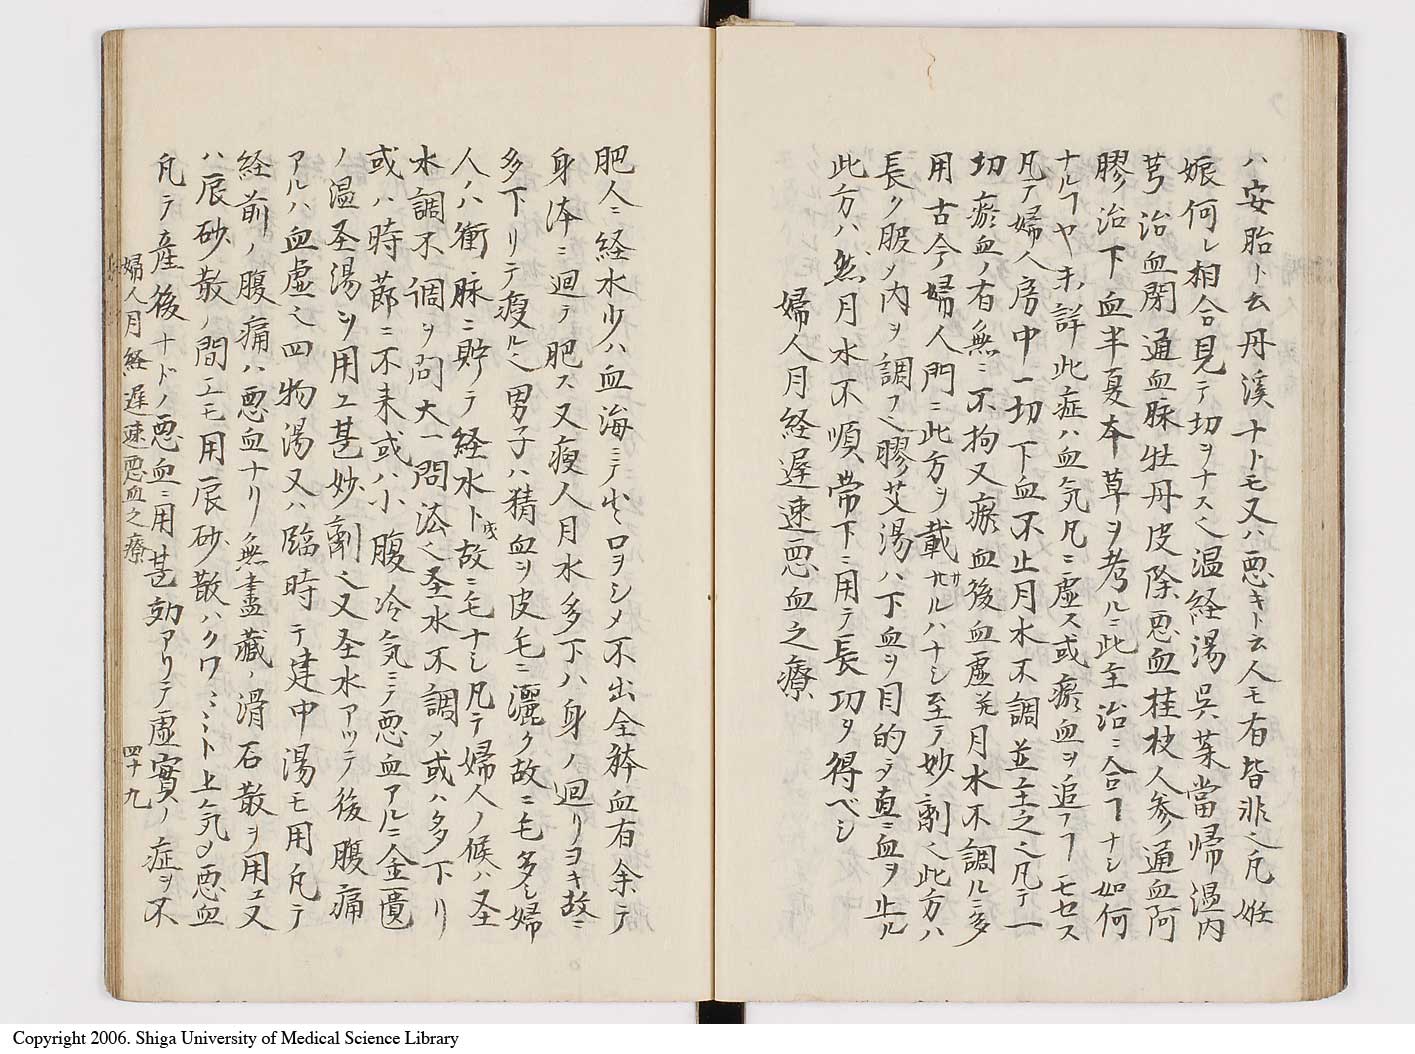 ハ安胎ト云丹溪ナトモ又ハ悪キト云人モ有皆非也凡妊
娠何レ相合見テ切ヲナス也温経湯呉茱當帰温内
芎治血閉通血脉牡丹皮除悪血桂枝人参通血阿
膠治下血半夏本草ヲ考ルニ此主治ニ合フナシ如何
ナルフヤ未詳此症ハ血気凡ニ虚ス或瘀血ヲ追フ
凡テ婦人房中一切下血不止月水不調並主之也凡テ一
切瘀血ノ有無ニ不拘又瘀血後血虚ノ月水不調ルニ多
用古今婦人門ニ此方ヲ載サルハナシ至テ妙剤也此方ハ
長ク服ノ内ヲ調フ也膠艾湯ハ下血ヲ目的ニ直ニ血ヲ止ル
此方ハ然月水不順帶下ニ用テ長功ヲ得ベシ
婦人月経遅速悪血之療
肥人ニ経水少ハ血海ニテ出口ヲシメ不出全躰血有余テ
身体ニ迴テ肥ス又瘦人月水多下ハ身ノ迴リヨキ故ニ
多下リテ瘦ル也男子ハ精血ヲ皮毛ニ灑ク故ニ毛多シ婦
人ハ衝脉ニ貯テ経水ト成故ニ毛ナシ凡テ婦人ノ候ハ圣
水調不調ヲ問大一問法也圣水不調メ或ハ多下リ
或ハ時節ニ不来或ハ小腹冷気ニテ悪血アルニ金匱
ノ温圣湯ヲ用エ甚妙剤也又圣水アツテ後腹痛
アルハ血虚也四物湯又ハ臨時テ建中湯モ用凡テ
経前ノ腹痛ハ悪血ナリ無盡藏ノ滑石散ヲ用エ又
ハ辰砂散ノ間エモ用辰砂散ハクワミミト上気メ悪血
凡テ産後ナドノ悪血ニ用甚効アリテ虚實ノ症ヲ不
婦人月経遅速悪血之療
四十九
Copyright 2006. Shiga University of Medical Science Library